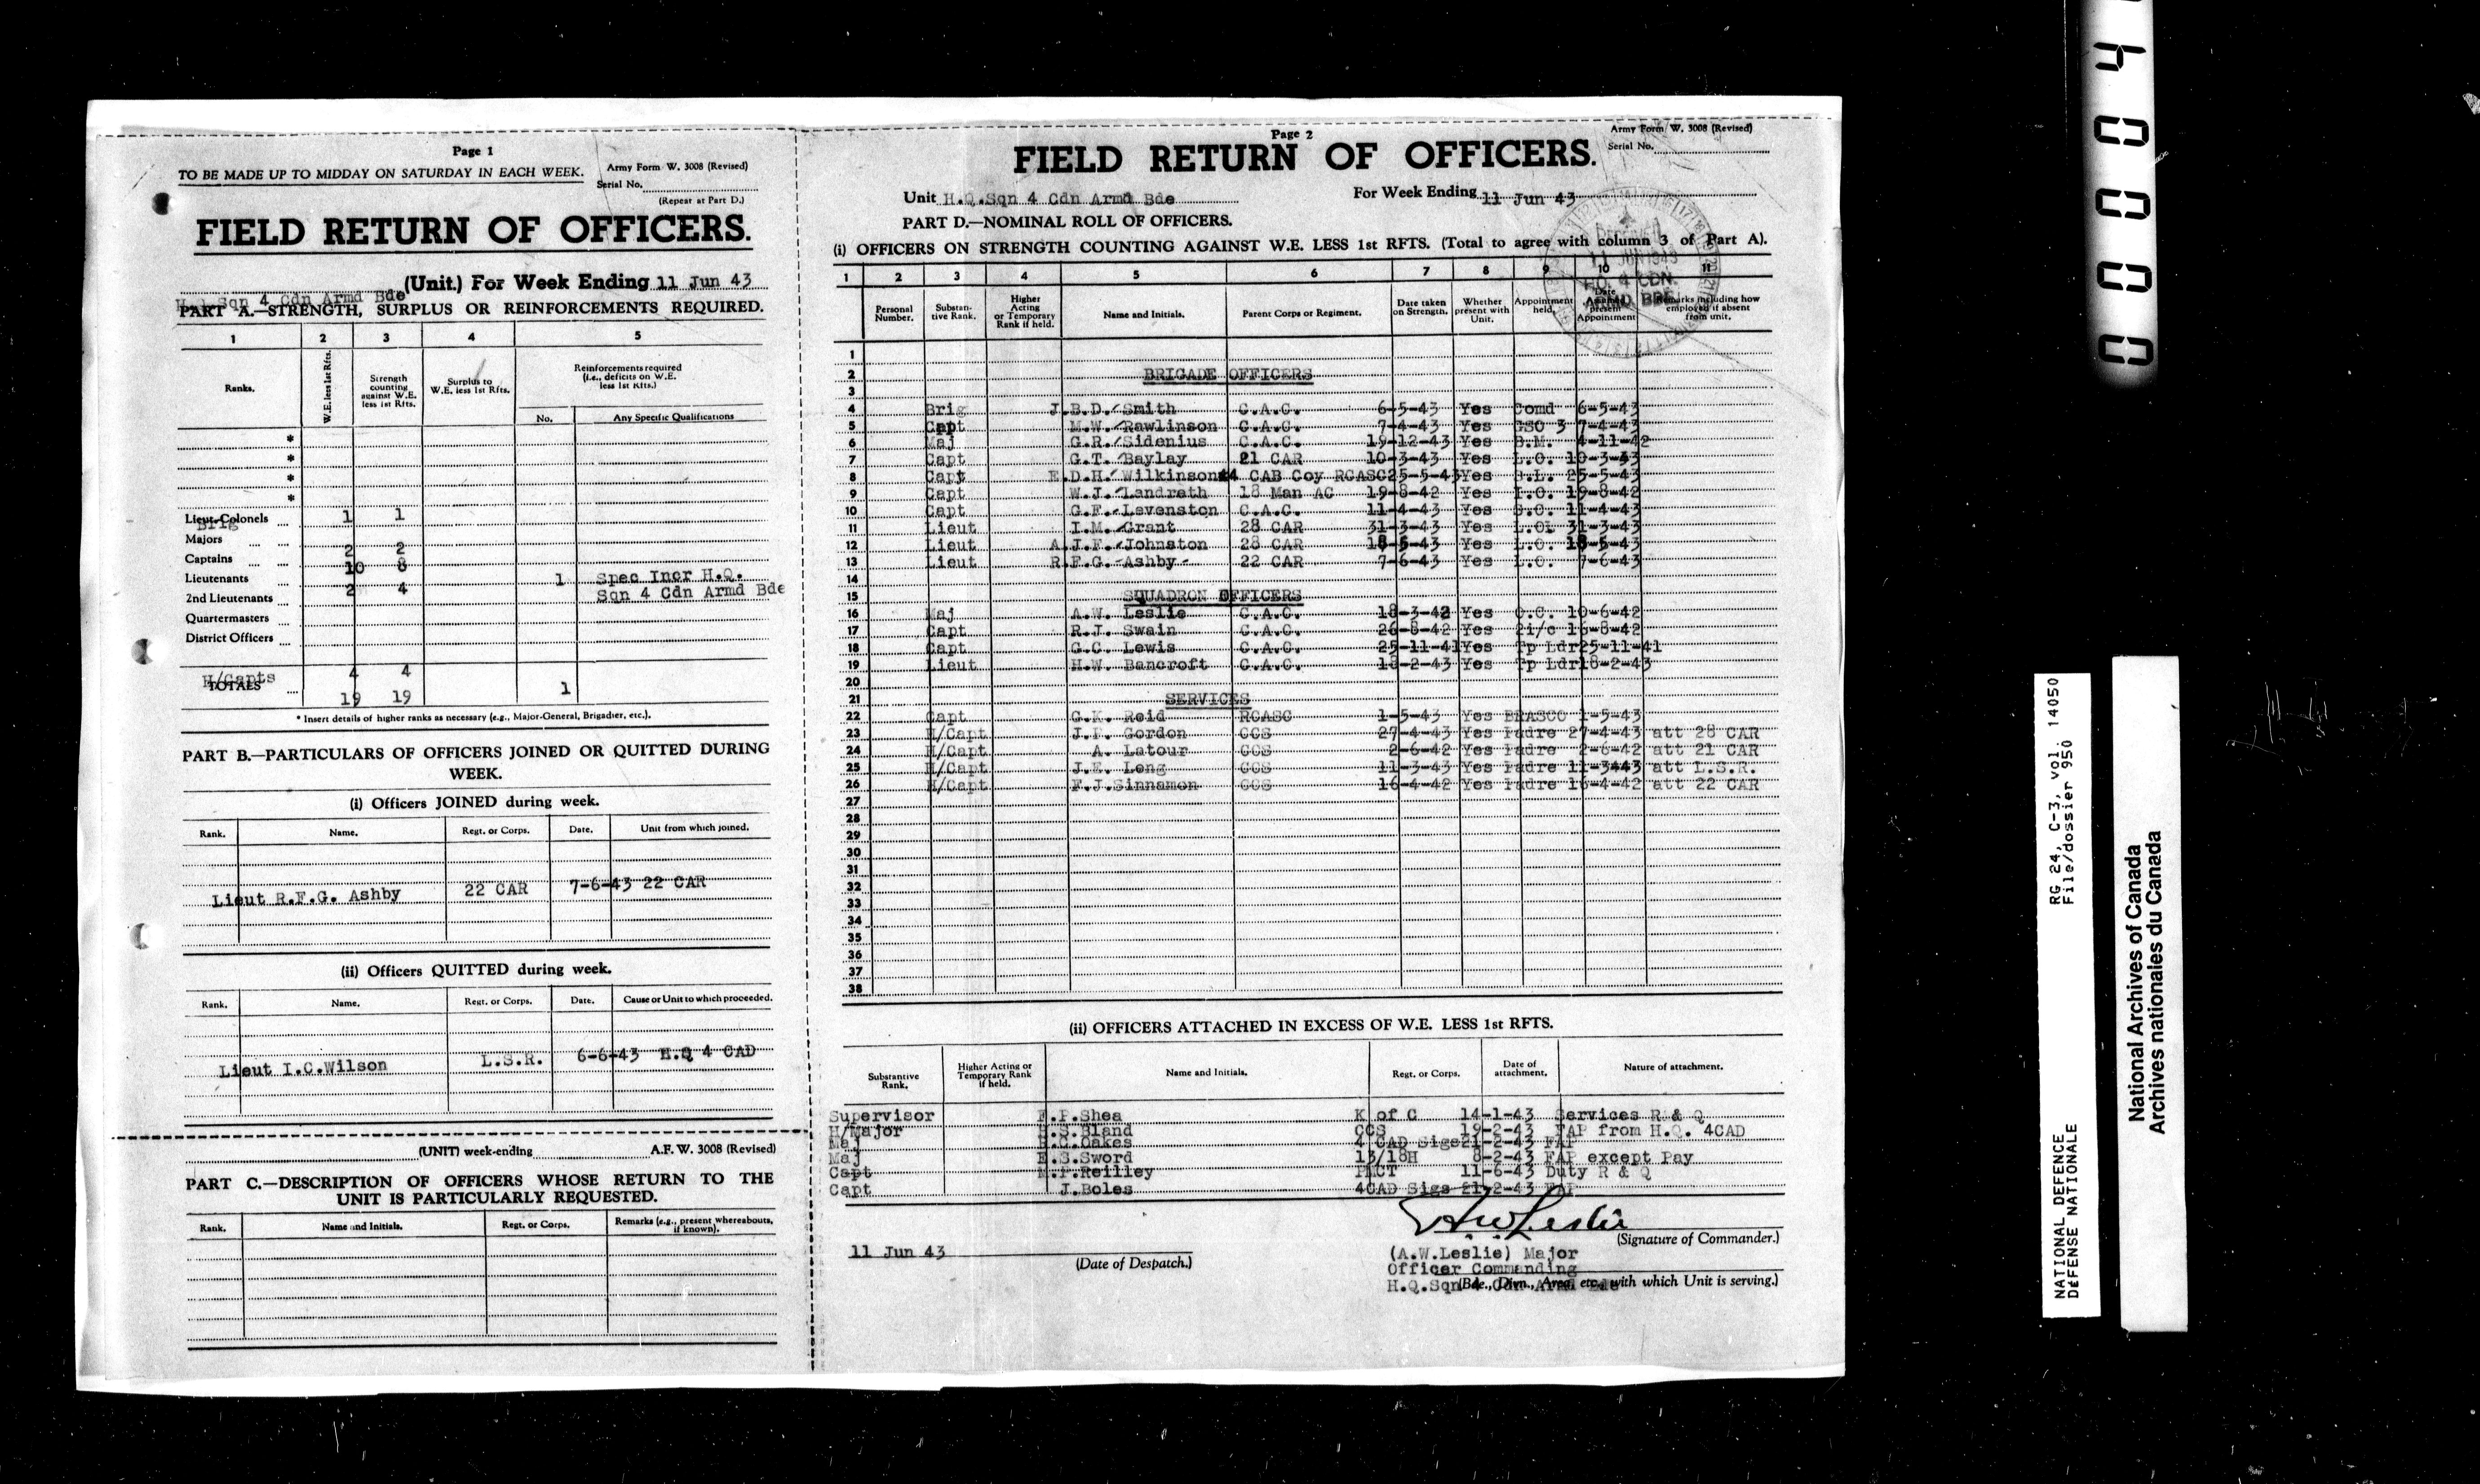 Page 1
TO BE MADE UP TO MIDDAY ON SATURDAY IN EACH WEEK.
Army Form W. 3008 (Revised)
Serial No.
(Repeat at Part D.)
FIELD RETURN OF OFFICERS.
H.Q.Sqn 4 Cdn Armd Bde (Unit.) For Week Ending 11 Jun 43
PART A.—STRENGTH, SURPLUS OR REINFORCEMENTS REQUIRED.
1 2 3 4 5
Ranks. W.E. less 1st Rfts. Strength counting against W.E. less 1st Rfts. Surplus to W.E. less 1st Rfts. Reinforcements required (i.e., deficits on W.E. less 1st Rfts.)
No. Any Specific Qualifications
*
*
*
*
Lieut-Colonels
Brig 1 1
Majors 2 2
Captains 10 8
Lieutenants 1 Spec Incr H.Q.
2 4 Sqn 4 Cdn Armd Bde
2nd Lieutenants
Quartermasters
District Officers
H/Capts 4 4
TOTALS 19 19 1
* Insert details of higher ranks as necessary (e.g., Major-General, Brigadier, etc.).
PART B.—PARTICULARS OF OFFICERS JOINED OR QUITTED DURING
WEEK.
(i) Officers JOINED during week.
Rank. Name. Regt. or Corps. Date. Unit from which joined.
Lieut R.F.G. Ashby 22 CAR 7-6-43 22 CAR
(ii) Officers QUITTED during week.
Rank. Name. Regt. or Corps. Date. Cause or Unit to which proceeded.
Lieut I.C.Wilson L.S.R. 6-6-43 H.Q 4 CAD
(UNIT) week-ending A.F. W. 3008 (Revised)
PART C.—DESCRIPTION OF OFFICERS WHOSE RETURN TO THE
UNIT IS PARTICULARLY REQUESTED.
Rank. Name and Initials. Regt. or Corps. Remarks (e.g., present whereabouts, if known).
Page 2
Army Form W. 3008 (Revised)
Serial No.
FIELD RETURN OF OFFICERS.
Unit H.Q.Sqn 4 Cdn Armd Bde For Week Ending 11 Jun 43
PART D.—NOMINAL ROLL OF OFFICERS.
(i) OFFICERS ON STRENGTH COUNTING AGAINST W.E. LESS 1st RFTS. (Total to agree with column 3 of Part A).
RECEIVED
11 JUN 1943
HQ. 4 CDN.
ARMD. BDE.
1 2 3 4 5 6 7 8 9 10 11
Personal Number. Substantive Rank. Higher Acting or Temporary Rank if held. Name and Initials. Parent Corps or Regiment. Date taken on Strength. Whether present with Unit. Appointment held. Date present Appointment Remarks including how employed if absent from unit.
1
2 BRIGADE OFFICERS
3
4 Brig J.B.D. Smith C.A.C. 6-5-43 Yes Comd 6-5-43
5 Capt M.W. Rawlinson C.A.C. 7-4-43 Yes GSO 3 7-4-43
6 Maj G.R. Sidenius C.A.C. 19-12-43 Yes B.M. 4-11-42
7 Capt G.T. Baylay 21 CAR 10-3-43 Yes L.O. 10-3-43
8 Capt E.D.H. Wilkinson 4 CAB Coy RCASC 25-5-43 Yes 25-5-43
9 Capt W.J. Landreth 18 Man AC 19-8-42 Yes I.O. 19-8-42
10 Capt G.E. Levenston C.A.C. 11-4-43 Yes S.O. 11-4-43
11 Lieut I.M. Grant 28 CAR 31-3-43 Yes L.O. 31-3-43
12 Lieut A.J.F. Johnston 28 CAR 18-5-43 Yes L.O. 18-5-43
13 Lieut R.F.G. Ashby 22 CAR 7-6-43 Yes L.O. 7-6-43
14
15 SQUADRON OFFICERS
16 Maj A.W. Leslie C.A.C. 18-3-42 Yes O.C. 10-6-42
17 Capt R.J. Swain C.A.C. 26-8-42 Yes 2i/c 16-8-42
18 Capt G.C. Lewis C.A.C. 25-11-41 Yes Tp Ldr 25-11-41
19 Lieut H.W. Bancroft C.A.C. 18-2-43 Yes Tp Ldr 18-2-43
20
21 SERVICES
22 Capt G.K. Reid RCASC 1-5-43 Yes BRASCO 1-5-43
23 H/Capt J.F. Gordon CCS 27-4-43 Yes Padre 27-4-43 att 28 CAR
24 H/Capt A. Latour CCS 2-6-42 Yes Padre 2-6-42 att 21 CAR
25 H/Capt J.E. Long CCS 11-3-43 Yes Padre 11-3-43 att L.S.R.
26 H/Capt F.J.Sinnamon CCS 16-4-42 Yes Padre 16-4-42 att 22 CAR
27
28
29
30
31
32
33
34
35
36
37
38
(ii) OFFICERS ATTACHED IN EXCESS OF W.E. LESS 1st RFTS.
Substantive Rank. Higher Acting or Temporary Rank if held. Name and Initials. Regt. or Corps. Date of attachment. Nature of attachment.
Supervisor F.P.Shea K of C 14-1-43 Services R & Q
H/Major H.S.Bland CCS 19-2-43 FAP from H.Q. 4CAD
Maj H.G.Oakes 4 CAD Sigs 21-2-43 FAP
Maj E.S.Sword 13/18H 8-2-43 FAP except Pay
Capt Reilley 11-6-43 Duty R & Q
Capt J.Boles 4CAD Sigs 21-2-43 FAP
AW Leslie
(Signature of Commander.)
11 Jun 43
(Date of Despatch.)
(A.W.Leslie) Major
Officer Commanding
H.Q.Sqn 4 Cdn Armd Bde
(Bde., Divn., Area, etc., with which Unit is serving.)
00004
RG 24, C-3, vol. 14050
File/dossier 950
NATIONAL DEFENCE
DÉFENSE NATIONALE
National Archives of Canada
Archives nationales du Canada